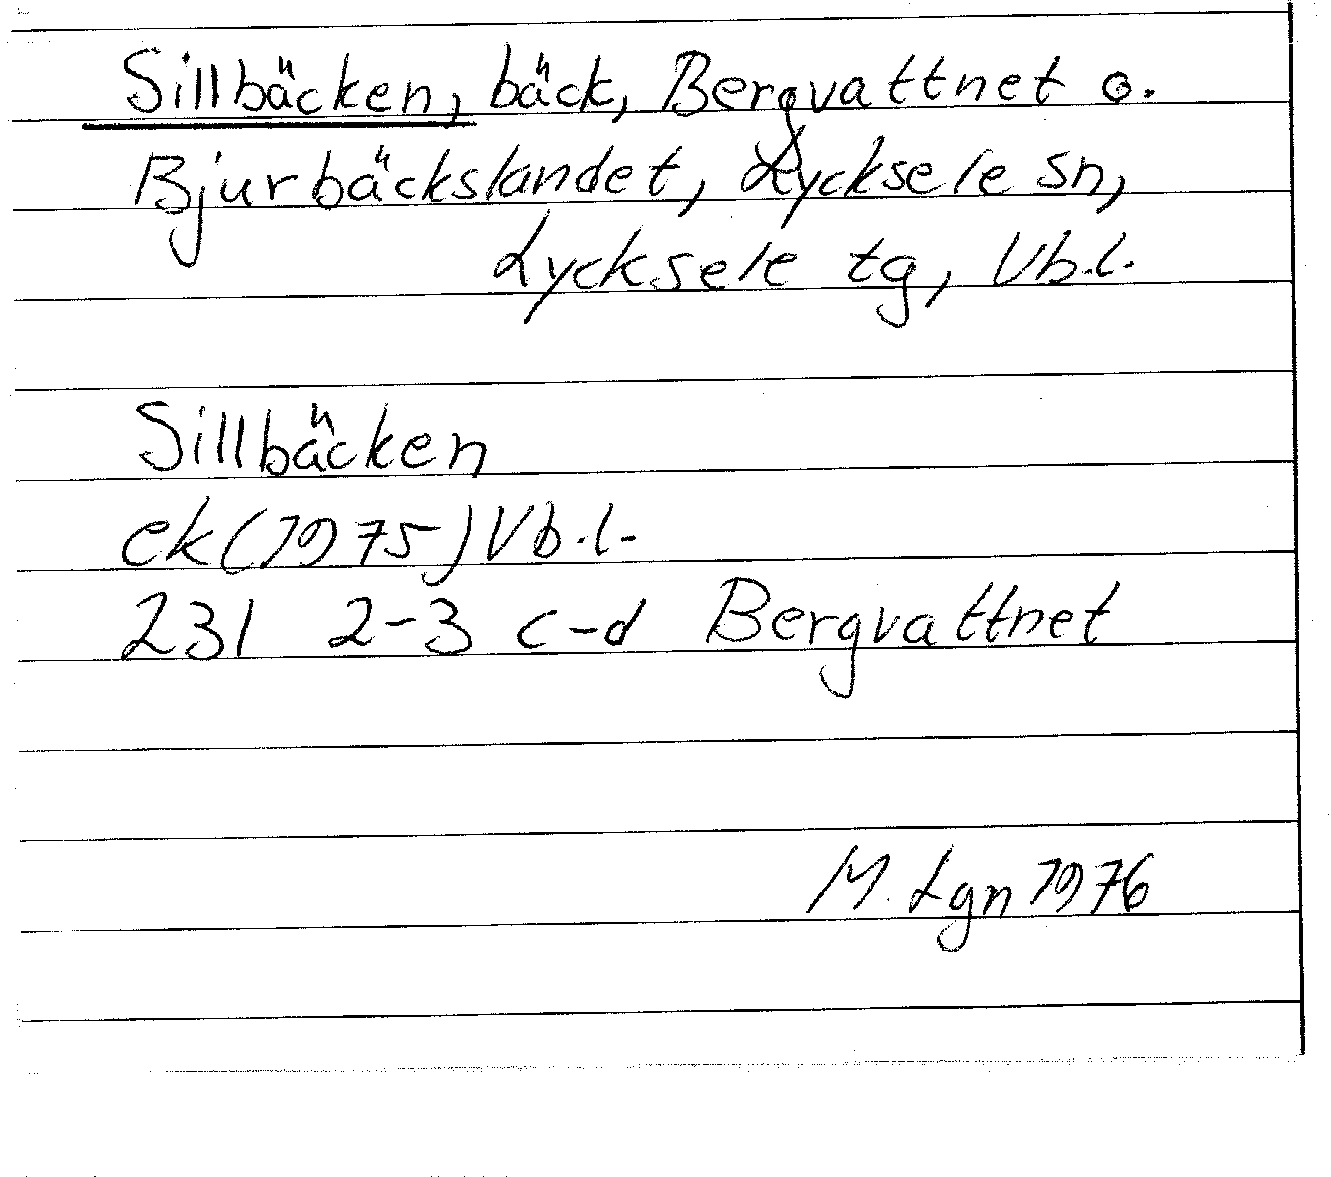 Sillbäcken, bäck, Bergvattnet o.
Bjurbäckslandet, Lycksele sn,
Lycksele tg, Vb.l.
Sillbäcken
ek(1975)Vb.l.
231 2-3 c-d Bergvattnet
M. Lgn 1976